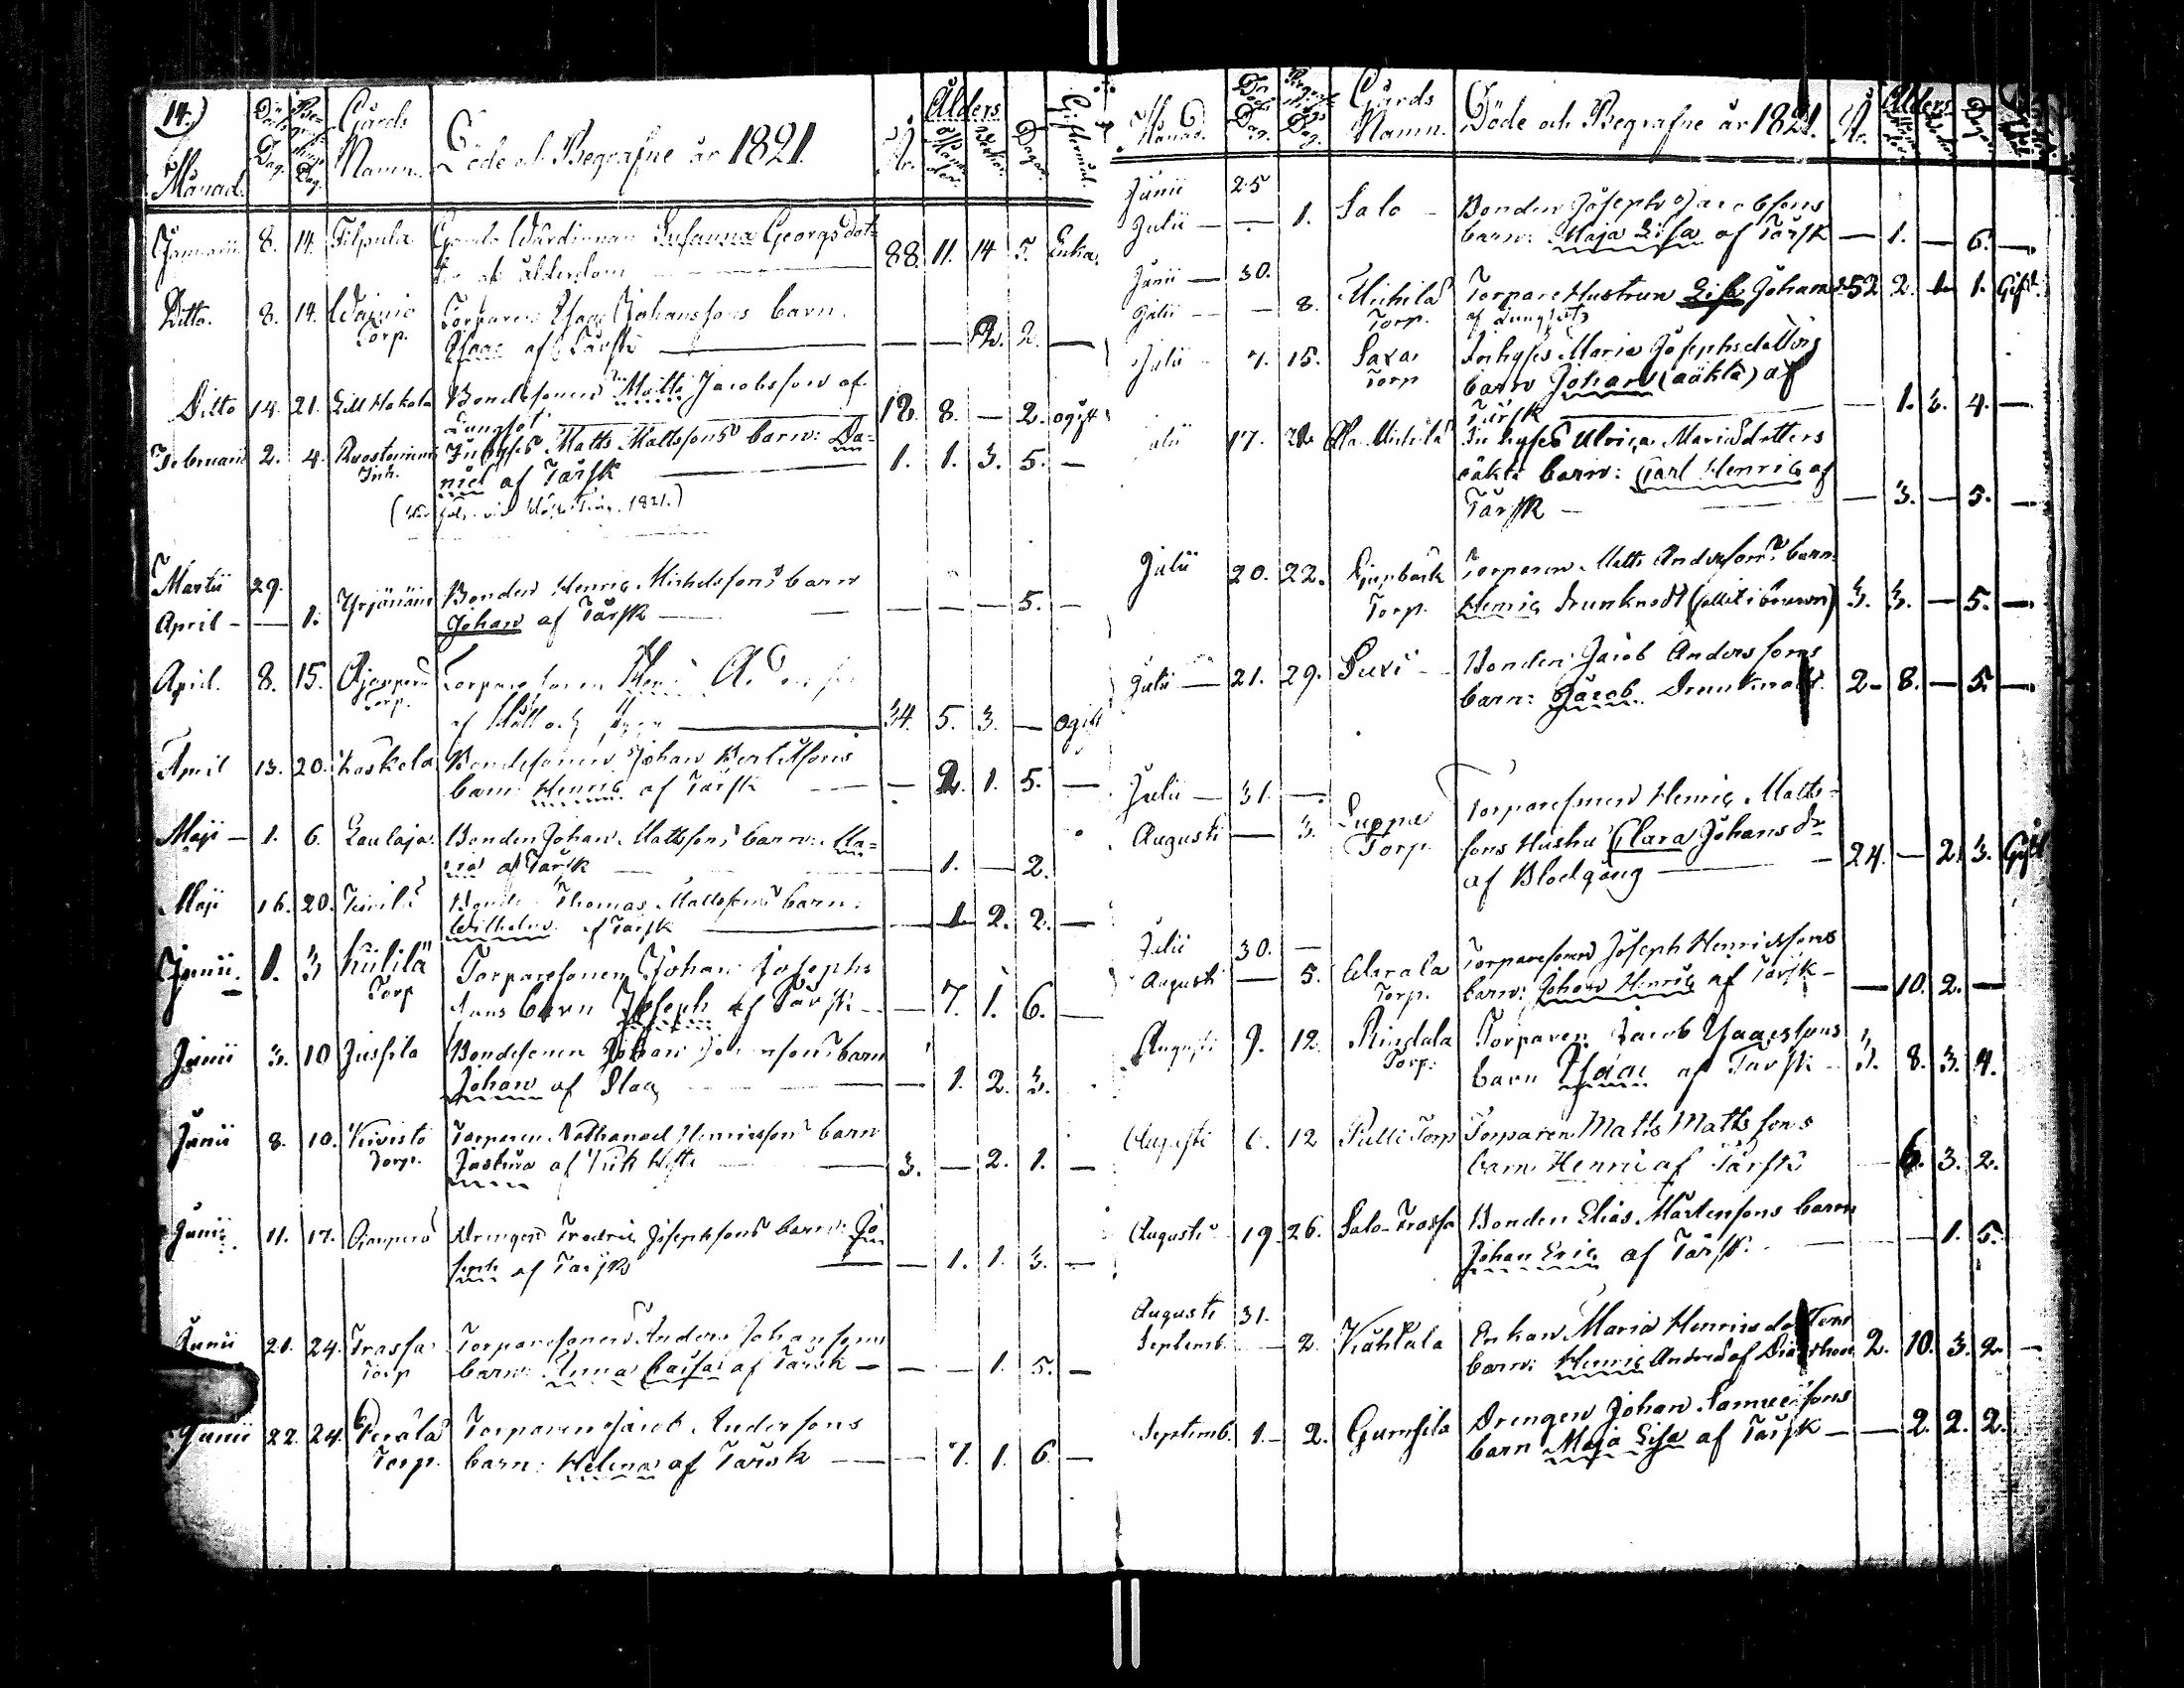 14.)
Månad.
Döds Dag.
Begrafnings Dag.
Gårds Namn.
Döde och Begrafne år 1821.
Ålders
År.
Månader.
Veckor.
Dagar.
Giftermål.
Januarii 8. 14. Filpula Gamla Värdinnan Susanna Georgsdot-
ter af ålderdom 88. 11. 14 5. Enka.
Ditto. 8. 14. Wainio Torp. Torparen Isaac Johanssons barn
Isaac af Tärsk — — 2. 2. —
Ditto 14. 21. Lill Hakola Bondesonen Matts Jacobsson af
Lungsot 18. 8. — 2. ogift
Februarii 2. 4. Inh. Inhyses Matts Mattsons barn: Da-
niel af Tärsk 1. 1. 3. 5. —
1821.)
Martii 29.
April — — 1. Yrjänäin Bonden Henric Michelsons barn
Johan af Tärsk — — — — 5. —
April. 8. 15. Torp. Torparesonen
af Håll och 34. 5. 3. — ogift
April 13. 20. Kaskela Bondesonen Johan Bertilsons
barn Henric af Tärsk — — 2. 1. 5. —
Maji — 1. 6. Laulaja Bonden Johan Mattsons barn: Ma-
ria af Tärsk — 1. — 2.
Maji 16. 20. Bonden Thomas Mattsons barn:
Wilhelm af Tärsk — 1 2. 2. —
Junii 1. 3 Kiililä Torp Torparesonen Johan Josephs
sons barn Joseph af Tärsk — 7. 1. 6. —
Junii 3. 10 Jussila Bondesonen Johan barn
Johan af Slag — 1. 2. 3.
Junii 8. 10. Kivistö Torp. Torparen Nathanael Henricsons barn
Justina af 3. — 2. 1. —
Junii 11. 17. Ojanperä Drengen Fredric Josephsons barn: Jo
seph af Tärsk — 1. 1. 3. —
Junii 21. 24. Frassa Torp Torparesonen Anders Johansons
barn: Anna Caisa af Tärsk — — — 1. 5. —
Junii 22. 24. Perälä Torp. Torparen Jacob Andersons
barn: Helena af Tärsk — 7. 1. 6. —
Månad.
Döds Dag.
Begrafnings Dag.
Gårds Namn.
Döde och Begrafne år 1821.
År.
Ålders
Junii 25
Julii — — 1. Salo — Bonden Joseph Jacobsons
barn: Maja Lisa af Tärsk — 1. — 6. —
Junii — 30.
Julii — — 8. Michilä Torp. Torpare Hustrun Lisa Johans 52 2. 1 1. Gift.
af Lungsot
Julii — 7. 15. Saxa Torp Inhyses Maria Josephsdotters
barn Johan (oäkta) af
Tärsk — 1. 3. 4. —
Julii 17. Michilä Inhyses Ulrica Mariæ dotters
oäkta barn: Carl Henric af
Tärsk — — 3. — 5. —
Julii 20. 22. Torp. Torparen Matts Andersons barn
Henric drunknadt (fallit i brunn) 3. 3. — 5. —
Julii — 21. 29. Suxi — Bonden Jacob Andersons
barn: Jacob Drunknadt. 2 8. — 5. —
Julii — 31. —
Augusti — 3. Luopa Torp. Torparesonen Henric Matts-
sons Hustru Clara Johansdr
af Blodgång — 24. — 2. 3. Gift
Julii 30. —
Augusti — 5. Alarala Torp. Torparesonen Joseph Henricsons
barn: Johan Henric af Tärsk — — 10. 2. —
Augusti 9. 12. Rindala Torp. Torparen Jacob Isaacssons
barn Isaac af Tärsk 3. 8. 3. 4.
Augusti 6. 12 Pulli Torp Torparen Matts Mattssons
barn Henric af Tärsk 6. 3. 2.
Augusti 19. 26. Salo-Frassa Bonden Elias Mårtensons barn
Johan Eric af Tärsk. — — 1. 5.
Augusti 31.
Septemb. — 2. Kuhtala Enkan Maria Henricsdotters
barn: Henric Anders af 2. 10. 3. 2. —
Septemb. 1. — 2. Gumsila Drengen Johan Samuelsons
barn Maja Lisa af Tärsk — — 2. 2. 2.